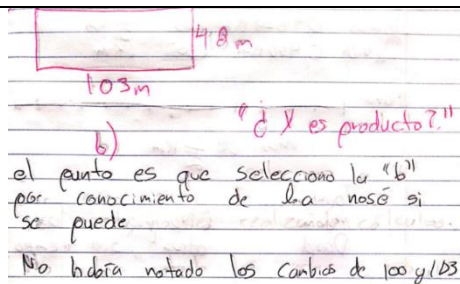 48 m
103 m
"¿X es producto?"
b)
el punto es que selecciono la "b"
por conocimiento de la nosé si
se puede
No había notado los cambios de 100 y 103